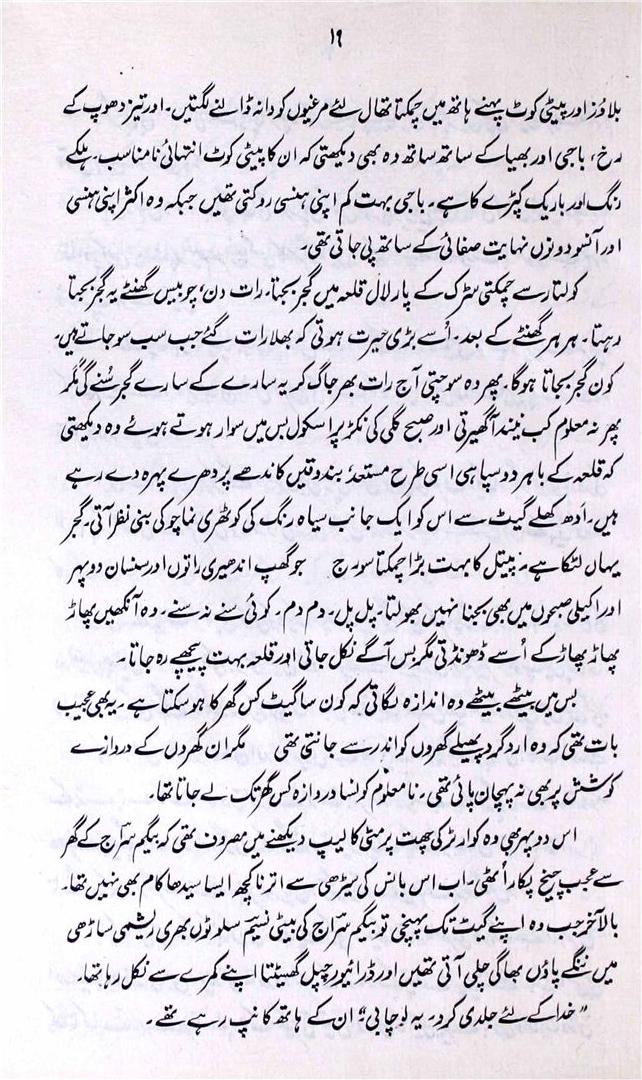 ۱۹
بلاؤز اور پیٹی کوٹ پہنے ہاتھ میں چمکتا تھال لئے مرغیوں کو دانہ ڈالنے لگتیں۔ اور تیز دھوپ کے
رخ، باجی اور بھیا کے ساتھ ساتھ وہ بھی دیکھتی کہ ان کا پیٹی کوٹ انتہائی نامناسب۔ ہلکے
رنگ اور باریک کپڑے کا ہے۔ باجی بہت کم اپنی ہنسی روکتی تھیں جبکہ وہ اکثر اپنی ہنسی
اور آنسو دونوں نہایت صفائی کے ساتھ پی جاتی تھی۔
کولتار سے چمکتی سڑک کے پار لال قلعہ میں گجر بجتا۔ رات دن، چوبیس گھنٹے یہ گجر بجتا
رہتا۔ ہر ہر گھنٹے کے بعد۔ اُسے بڑی حیرت ہوتی کہ بھلا رات گئے جب سب سو جاتے ہیں۔
کون گجر بجاتا ہوگا۔ پھر وہ سوچتی آج رات بھر جاگ کر یہ سارے کے سارے گجر سُنے گی مگر
پھر نہ معلوم کب نیند آگھیرتی اور صبح گلی کی نکڑ پر اسکول بس میں سوار ہوتے ہوئے وہ دیکھتی
کہ قلعہ کے باہر دو سپاہی اسی طرح مستعد بندوقیں کاندھے پر دھرے پہرہ دے رہے
ہیں۔ اَدھ کھلے گیٹ سے اس کو ایک جانب سیاہ رنگ کی کوٹھری نما چوکی بنی نظر آتی۔ گجر
یہاں لٹکا ہے۔ پیتل کا بہت بڑا چمکتا سورج جو گھپ اندھیری راتوں اور سنسان دوپہر
اور اکیلی صبحوں میں بھی بجنا نہیں بھولتا۔ پل پل۔ دم دم۔ کوئی سنے نہ سنے۔ وہ آنکھیں پھاڑ
پھاڑ پھاڑ کے اُسے ڈھونڈتی مگر بس آگے نکل جاتی اور قلعہ بہت پیچھے رہ جاتا۔
بس میں بیٹھے بیٹھے وہ اندازہ لگاتی کہ کون سا گیٹ کس گھر کا ہوسکتا ہے۔ یہ بھی عجیب
بات تھی کہ وہ ارد گرد پھیلے گھروں کو اندر سے جانتی تھی مگر ان گھروں کے دروازے
کوشش پر بھی نہ پہچان پائی تھی۔ نا معلوم کونسا دروازہ کس گھر تک لے جاتا تھا۔
اس دوپہر بھی وہ کوارٹر کی چھت پر مٹی کا لیپ دیکھنے میں مصروف تھی کہ بیگم سراج کے گھر
سے عجب چیخ پکار اُٹھی۔ اب اس بانس کی سیڑھی سے اترنا کچھ ایسا سیدھا کام بھی نہیں تھا۔
بالآخر جب وہ اپنے گیٹ تک پہنچی تو بیگم سراج کی بیٹی نسیم سلوٹوں بھری ریشمی ساڑھی
میں ننگے پاؤں بھاگی چلی آتی تھیں اور ڈرائیور چپل گھسیٹتا اپنے کمرے سے نکل رہا تھا۔
"خدا کے لئے جلدی کرو۔ یہ لو چابی" ان کے ہاتھ کانپ رہے تھے۔